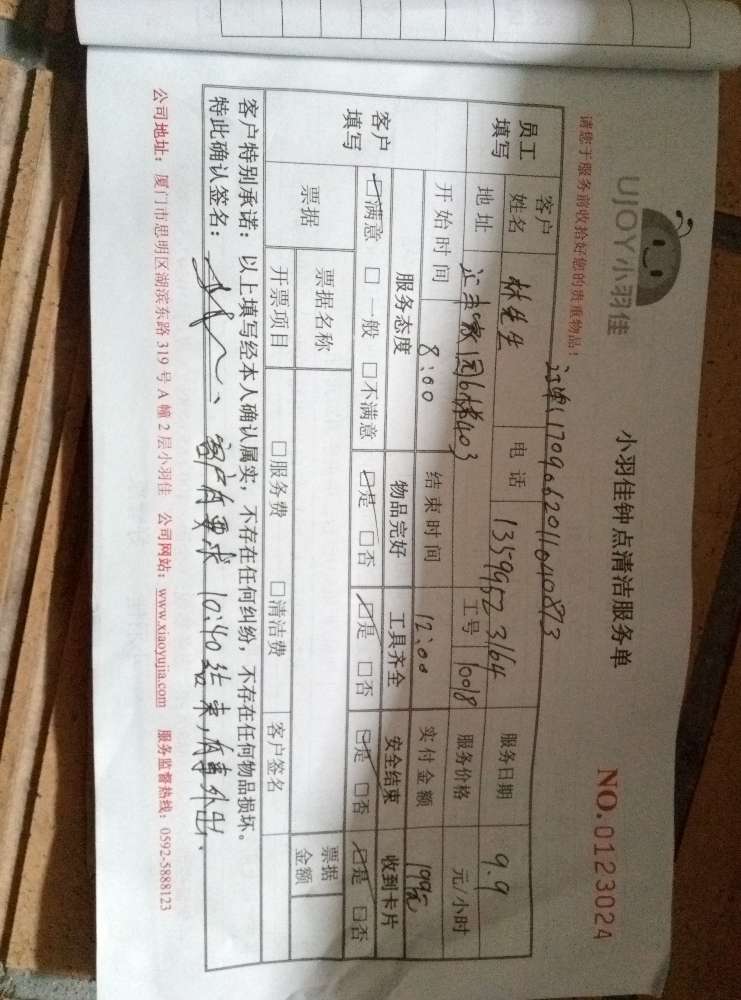 UJOY小羽佳
小羽佳钟点清洁服务单
NO.0123024
请您于服务前收拾好您的贵重物品！
订单1709062011040873
员工填写
客户姓名 林先生 电话 13599523164 服务日期 9.9
地址 家园6楼403 工号 10018 服务价格 元/小时
开始时间 8:00 结束时间 12:00 实付金额 199元
客户填写
服务态度 物品完好 工具齐全 安全结束 收到卡片
☑满意 □一般 □不满意 ☑是 □否 ☑是 □否 ☑是 □否 ☑是 □否
票据 票据名称 票据金额
开票项目 □服务费 □清洁费 客户签名
客户特别承诺：以上填写经本人确认属实，不存在任何纠纷，不存在任何物品损坏。
特此确认签名： 客户有要求 10:40结束，有事外出.
公司地址：厦门市思明区湖滨东路319号A幢2层小羽佳 公司网站：www.xiaoyujia.com 服务监督热线：0592-5888123